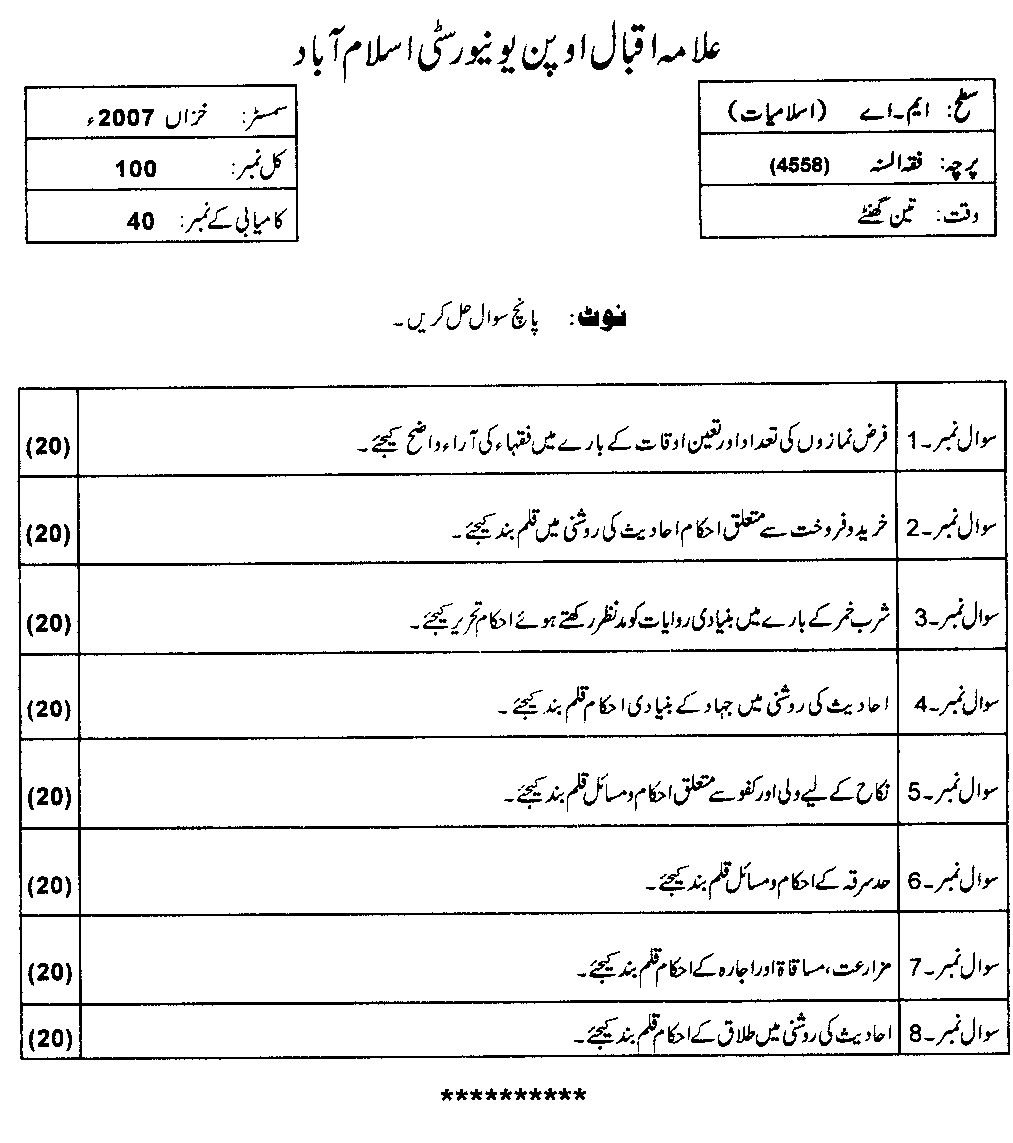 علامہ اقبال اوپن یونیورسٹی اسلام آباد
سطح: ایم۔اے (اسلامیات)
پرچہ: فقہ السنہ (4558)
وقت: تین گھنٹے
سمسٹر: خزاں 2007ء
کل نمبر: 100
کامیابی کے نمبر: 40
نوٹ: پانچ سوال حل کریں۔
سوال نمبر۔1 فرض نمازوں کی تعداد اور تعین اوقات کے بارے میں فقہاء کی آراء واضح کیجئے۔ (20)
سوال نمبر۔2 خرید و فروخت سے متعلق احکام احادیث کی روشنی میں قلم بند کیجئے۔ (20)
سوال نمبر۔3 شرب خمر کے بارے میں بنیادی روایات کو مدنظر رکھتے ہوئے احکام تحریر کیجئے۔ (20)
سوال نمبر۔4 احادیث کی روشنی میں جہاد کے بنیادی احکام قلم بند کیجئے۔ (20)
سوال نمبر۔5 نکاح کے لیے ولی اور کفو سے متعلق احکام و مسائل قلم بند کیجئے۔ (20)
سوال نمبر۔6 حد سرقہ کے احکام و مسائل قلم بند کیجئے۔ (20)
سوال نمبر۔7 مزارعت، مساقاۃ اور اجارہ کے احکام قلم بند کیجئے۔ (20)
سوال نمبر۔8 احادیث کی روشنی میں طلاق کے احکام قلم بند کیجئے۔ (20)
**********